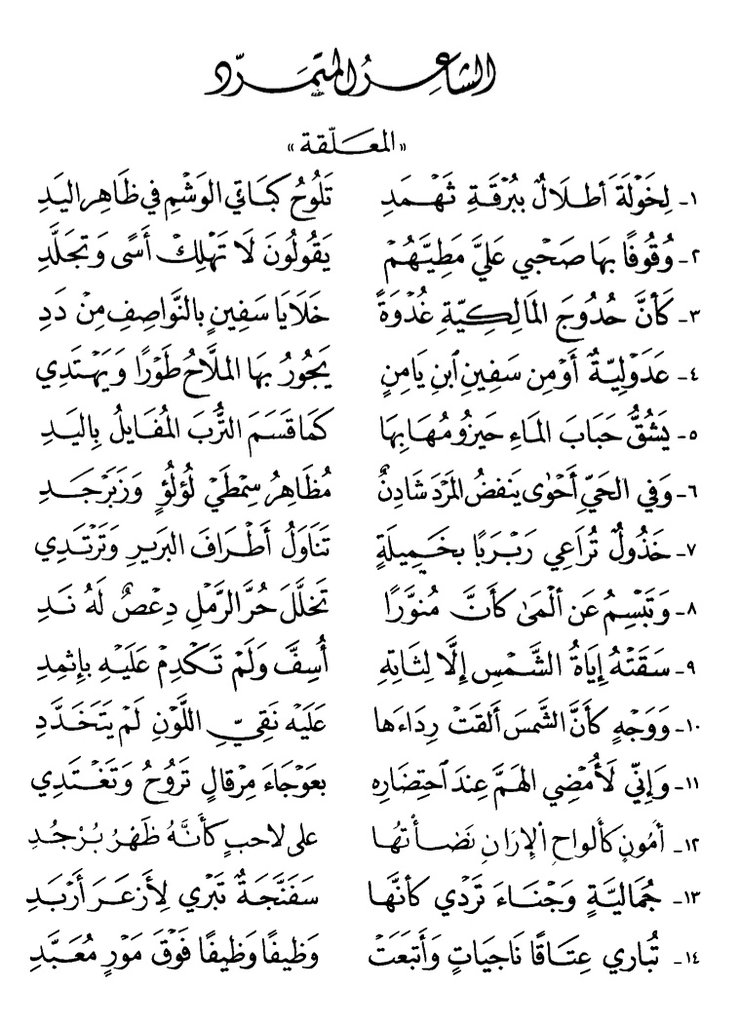 الشاعر المتمرد
«المعلّقة»
١- لِخَوْلَةَ أَطْلَالٌ بِبُرْقَةِ ثَهْمَدِ تَلُوحُ كَبَاقِي الوَشْمِ في ظَاهِرِ اليَدِ
٢- وُقُوفًا بِهَا صَحْبِي عَلَيَّ مَطِيَّهُمْ يَقُولُونَ لَا تَهْلِكْ أَسًى وَتَجَلَّدِ
٣- كَأَنَّ حُدُوجَ المَالِكِيَّةِ غُدْوَةً خَلَايَا سَفِينٍ بِالنَّوَاصِفِ مِنْ دَدِ
٤- عَدَوْلِيَّةٌ أَوْ مِن سَفِينِ ٱبنِ يَامِنٍ يَجُورُ بِهَا المَلَّاحُ طَوْرًا وَيَهْتَدِي
٥- يَشُقُّ حَبَابَ المَاءِ حَيزُومُهَا بِهَا كَمَا قَسَمَ التُّرْبَ المُفَايِلُ بِاليَدِ
٦- وَفِي الحَيِّ أَحْوَى يَنفضُ المَرْدَ شَادِنٌ مُظَاهِرُ سِمْطَيْ لُؤْلُؤٍ وَزَبَرْجَدِ
٧- خَذُولٌ تُرَاعِي رَبْرَبًا بِخَمِيلَةٍ تَنَاوَلُ أَطْرَافَ البَرِيرِ وَتَرْتَدِي
٨- وَتَبْسِمُ عَن أَلْمَى كَأَنَّ مُنوَّرًا تَخَلَّلَ حُرَّ الرَّمْلِ دِعْصٌ لَهُ نَدِ
٩- سَقَتْهُ إِيَاةُ الشَّمْسِ إِلَّا لِثَاتِهِ أُسِفَّ وَلَمْ تَكْدِمْ عَلَيْهِ بِإِثمِدِ
١٠- وَوَجْهٍ كَأَنَّ الشَّمْسَ أَلقَتْ رِدَاءَها عَلَيْه نَقِيِّ اللَّوْنِ لَمْ يَتَخَدَّدِ
١١- وَإِنِّي لَأُمْضِي الهَمَّ عِندَ ٱحتِضَارِهِ بِعَوْجَاءَ مِرْقالٍ تَرُوحُ وَتَغْتَدِي
١٢- أَمُونٍ كَأَلواحِ الإِرَانِ نَضَأْتُها على لاحبٍ كَأَنَّهُ ظَهْرُ بُرْجُدِ
١٣- جُمَاليَّةٍ وَجْنَاءَ تَرْدِي كَأنَّها سَفَنَّجَةٌ تَبْرِي لِأَزعَرَ أَرْبَدِ
١٤- تُباري عِتَاقًا نَاجِيَاتٍ وَأَتبَعَتْ وَظيفًا وَظيفًا فَوْقَ مَوْرٍ مُعَبَّدِ